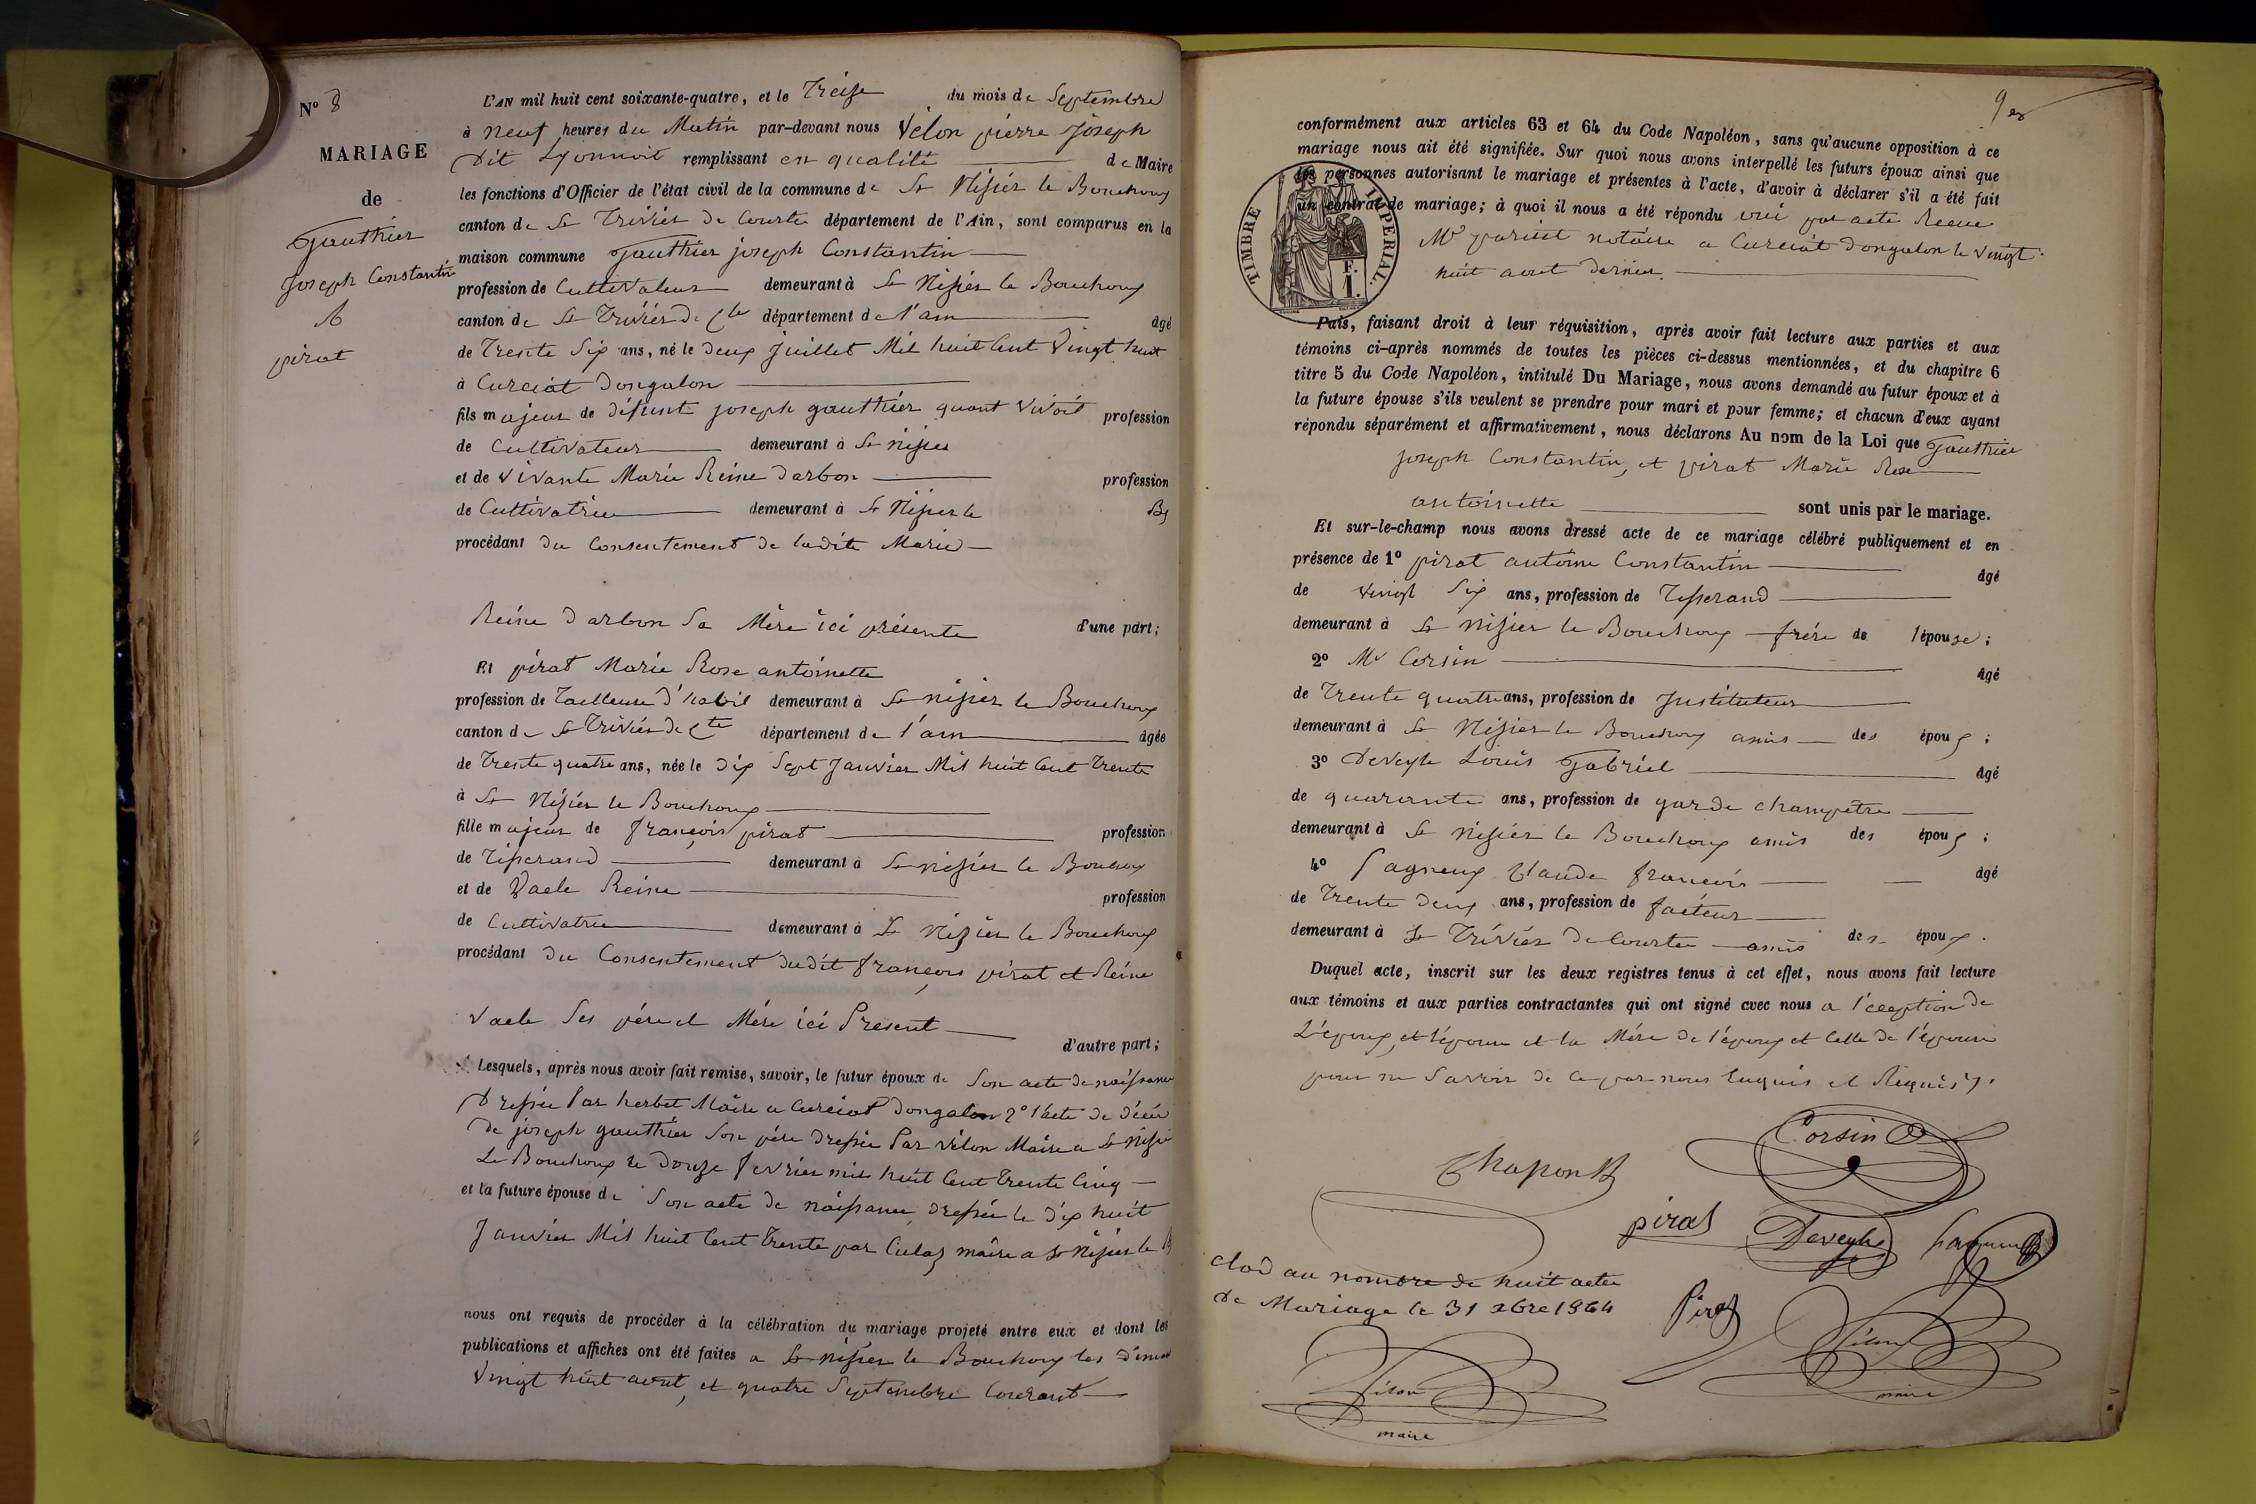 N° 8
MARIAGE
de
Gauthier
Joseph Constantin
&
pirat
L'AN mil huit cent soixante-quatre, et le Treize du mois de Septembre
à neuf heures du Matin par-devant nous Vélon pierre Joseph
Dit Lyonnoit remplissant en qualité de Maire
les fonctions d'Officier de l'état civil de la commune de St Nisier le Bouchoux
canton de St Trivier de Courte département de l'Ain, sont comparus en la
maison commune Gauthier joseph Constantin
profession de Cultivateur demeurant à St Nisier le Bouchoux
canton de St Trivier de Cte département de l'ain âgé
de Trente Six ans, né le deux Juillet Mil huit Cent Vingt huit
à Curciat Dongalon
fils majeur de défunt joseph gauthier quant vivoit profession
de Cultivateur demeurant à St nisier
et de vivante Marie Reine Darbon profession
de Cultivatrice demeurant à St Nisier le Bx
procédant du Consentement de ladite Marie
Reine Darbon Sa Mère ici présente d'une part;
Et pirat Marie Rose antoinette
profession de Tailleuse d'habit demeurant à St nisier le Bouchoux
canton de St Trivier de Cte département de l'ain âgée
de Trente quatre ans, née le dix Sept Janvier Mil huit Cent Trente
à St Nisier le Bouchoux
fille majeur de françois pirat profession
de Tisserand demeurant à St nisier le Bouchoux
et de Vaele Reine profession
de Cultivatrice demeurant à St Nizier le Bouchoux
procédant du Consentement dudit françois pirat et Reine
Vaele Ses père et Mère ici Présent d'autre part;
Lesquels, après nous avoir fait remise, savoir, le futur époux de Son acte de naissance
Dressée Par herbet Maire a Curciat Dongalon 2° l'acte de décès
de joseph gauthier Son père dressée Par vélon Maire a St Nisier
Le Bouchoux le Douze fevrier mil huit Cent Trente Cinq
et la future épouse de Son acte de naissance dressée le dix huit
Janvier Mil huit Cent Trente par Culaz maire a St Nisier le B
nous ont requis de procéder à la célébration du mariage projeté entre eux et dont les
publications et affiches ont été faites a St nisier le Bouchoux les diman
Vingt huit aout, et quatre Septembre Courant
conformément aux articles 63 et 64 du Code Napoléon, sans qu'aucune opposition à ce
mariage nous ait été signifiée. Sur quoi nous avons interpellé les futurs époux ainsi que
les personnes autorisant le mariage et présentes à l'acte, d'avoir à déclarer s'il a été fait
un contrat de mariage; à quoi il nous a été répondu oui par acte Recue
Mr notaire a Curciat Dongalon le Vingt
huit aout dernier.
TIMBRE IMPERIAL.
F.
1.
Puis, faisant droit à leur réquisition, après avoir fait lecture aux parties et aux
témoins ci-après nommés de toutes les pièces ci-dessus mentionnées, et du chapitre 6
titre 5 du Code Napoléon, intitulé Du Mariage, nous avons demandé au futur époux et à
la future épouse s'ils veulent se prendre pour mari et pour femme; et chacun d'eux ayant
répondu séparément et affirmativement, nous déclarons Au nom de la Loi que Gauthier
Joseph Constantin, et pirat Marie Rose
antoinette sont unis par le mariage.
Et sur-le-champ nous avons dressé acte de ce mariage célébré publiquement et en
présence de 1° pirat antoine Constantin âgé
de vingt Six ans, profession de Tisserand
demeurant à St nisier le Bouchoux frére de l'épouse;
2° Mr Corsin âgé
de Trente quatre ans, profession de Instituteur
demeurant à St Nisier le Bouchoux amis des époux;
3° Deveyle Louis Gabriel âgé
de quarante ans, profession de garde champêtre
demeurant à St Nisier le Bouchoux amis des époux;
4° Pagneux Claude françois âgé
de Trente deux ans, profession de facteur
demeurant à St Trivier de Courte amis des époux.
Duquel acte, inscrit sur les deux registres tenus à cet effet, nous avons fait lecture
aux témoins et aux parties contractantes qui ont signé avec nous a l'ception de
L'époux, et l'épouse et la Mére de l'époux et Celle de l'épouse
pour ne Savoir de ce par nous Enquis et Requis.
Corsin
Chapon
pirat Deveyle
clod au nombre de huit actes
de Mariage le 31 xbre 1864
Pirat
Vélon
maire
Vélon
maire